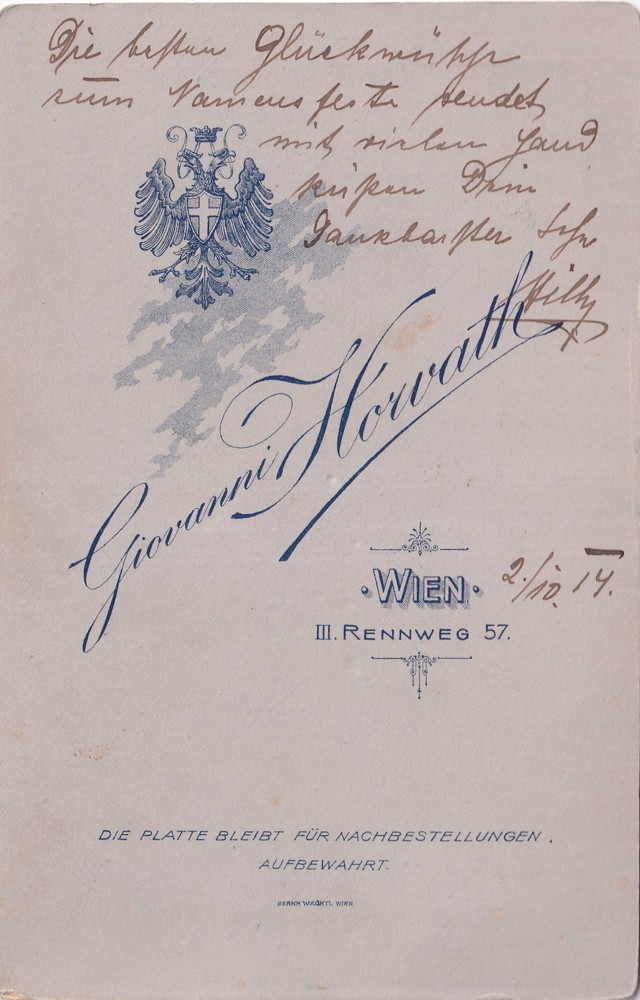 Die besten Glückwünsche
zum Namensfeste sendet
mit vielen Hand
küßen Dein
Dankbarster Sohn
Willy
Giovanni Horvath
WIEN
2./10. 14.
III. RENNWEG 57.
DIE PLATTE BLEIBT FÜR NACHBESTELLUNGEN
AUFBEWAHRT.
BERNH WACHTL WIEN